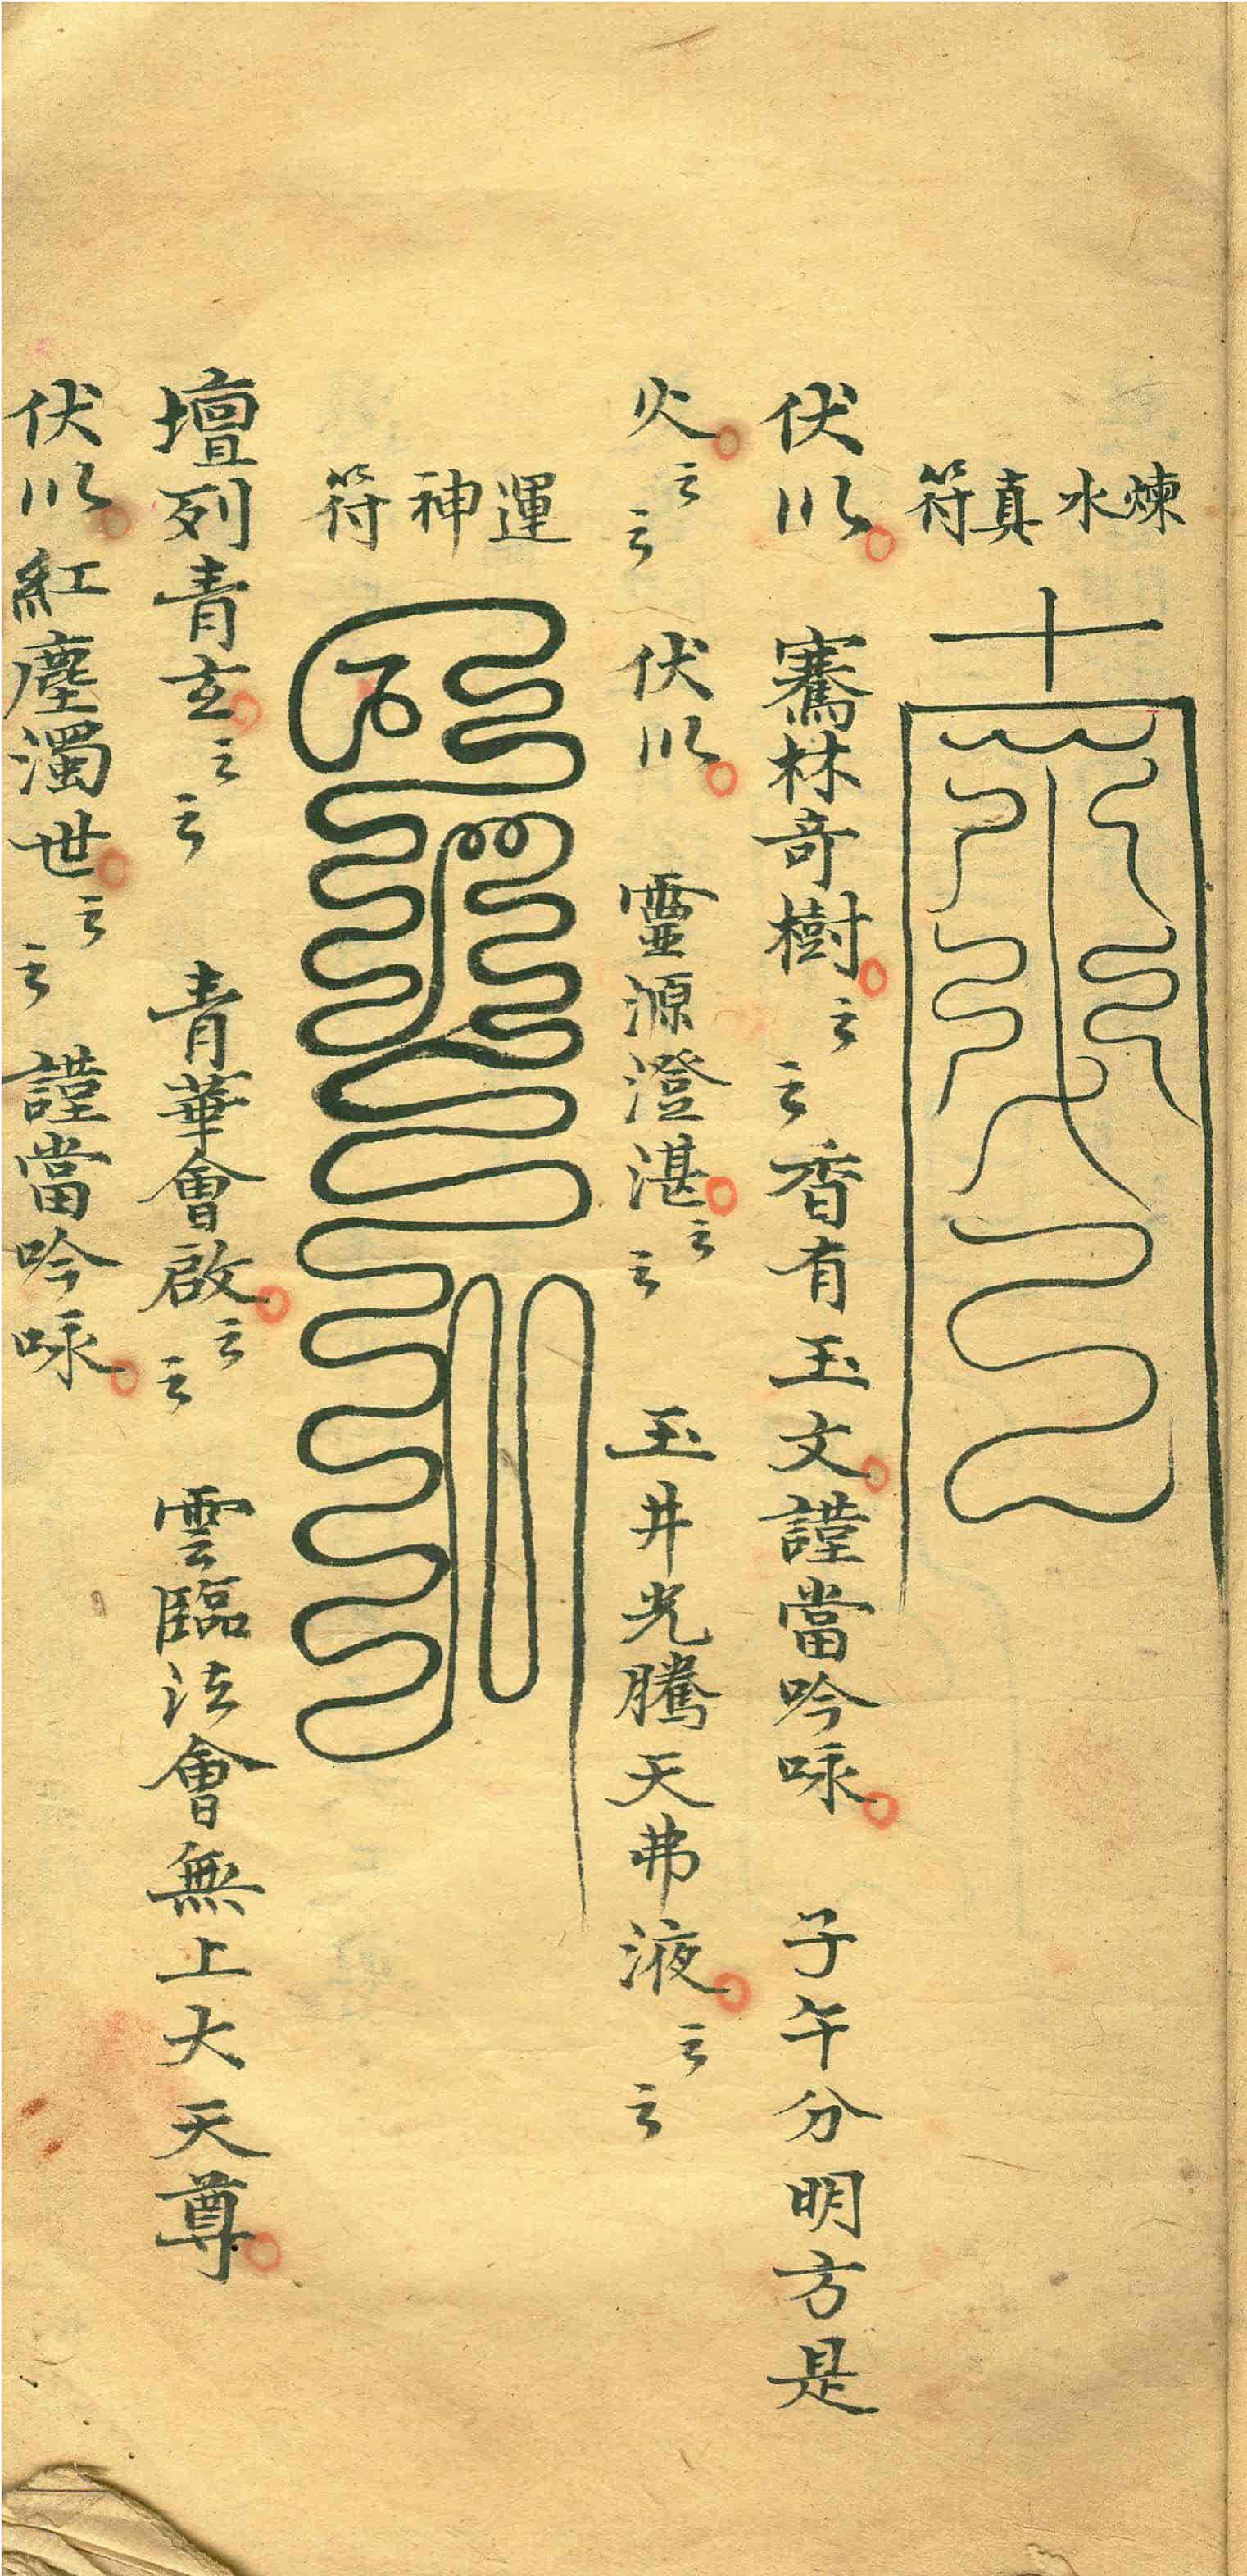 煉水真符
伏以 騫林奇樹云云香有玉文謹當吟咏 子午分明方是
火云云 伏以 靈源澄湛云云 玉井光騰天弗液云云
運神符
壇列青玄云云 青華會啟云云 雲臨法會無上大天尊
伏以紅塵濁世云云 謹當吟咏